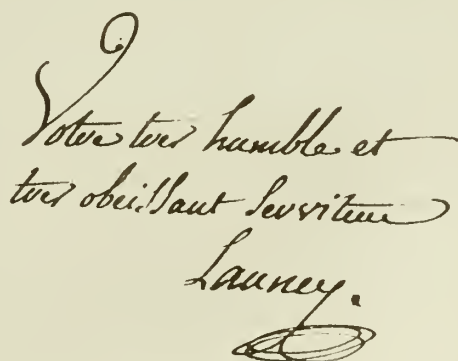 Votre tres humble et
tres obeissant Serviteur
Launey.